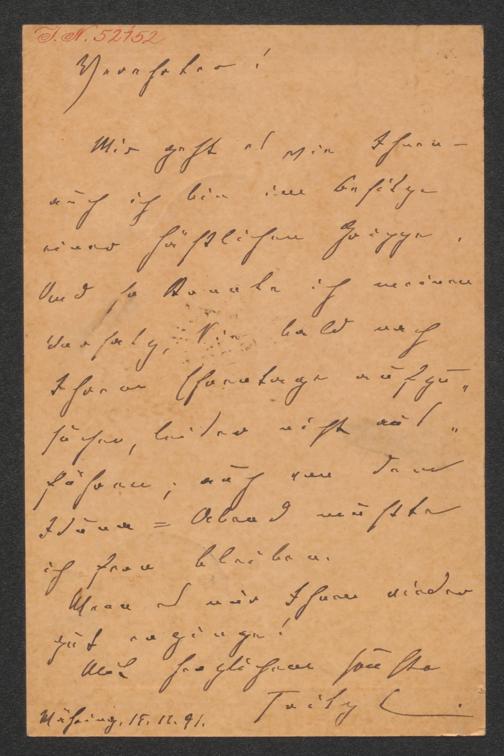 I. N. 52152
Verehrter!
Mir geht es wie Ihnen –
auch ich bin im Besitze
einer häßlichen Grippe.
Und so konnte ich meinen
Vorsatz, Sie bald nach
Ihrem Ehrentage aufzu„
suchen, leider nicht aus„
führen; auch von dem
Iduna = Abend mußte
ich fern bleiben.
Wenn es nur Ihnen wieder
gut erginge!
Mit herzlichem Gruße
15.12.91.